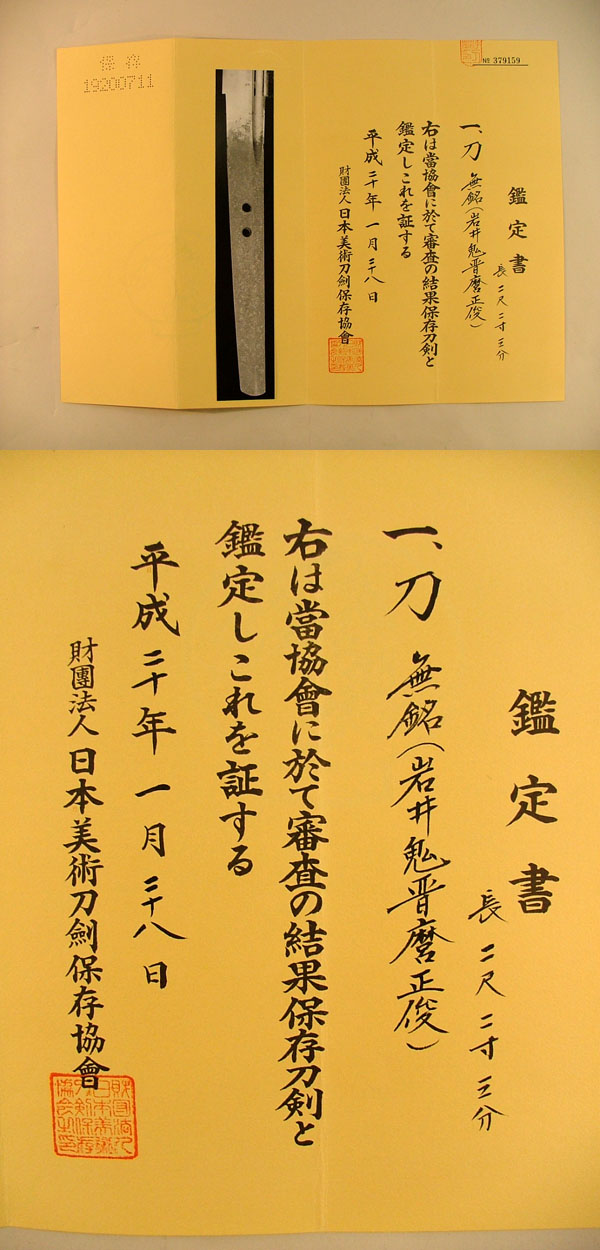 保存
19200711
№ 379159
鑑定書
長二尺二寸三分
一、刀 無銘(岩井鬼晋麿正俊)
右は當協會に於て審査の結果保存刀剣と
鑑定しこれを証する
平成二十年一月二十八日
財團法人 日本美術刀劍保存協會
鑑定書
長二尺二寸三分
一、刀 無銘(岩井鬼晋麿正俊)
右は當協會に於て審査の結果保存刀剣と
鑑定しこれを証する
平成二十年一月二十八日
財團法人 日本美術刀劍保存協會